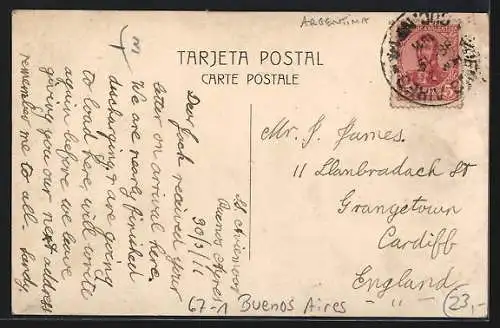 ARGENTINA
TARJETA POSTAL
CARTE POSTALE
Buenos Ayres
30/3/11
Dear Jack received your
letter on arrival here.
We are nearly finished
discharging & are going
to load here, will write
again before we leave
giving you our next address
remember me to all. Sandy.
Mr. J. James.
11 Llanbradach St
Grangetown
Cardiff
England
67-1 Buenos Aires
23,-